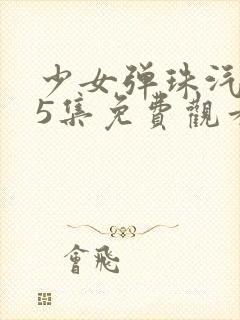 少女弹珠汽
5集免費觀看
會飛